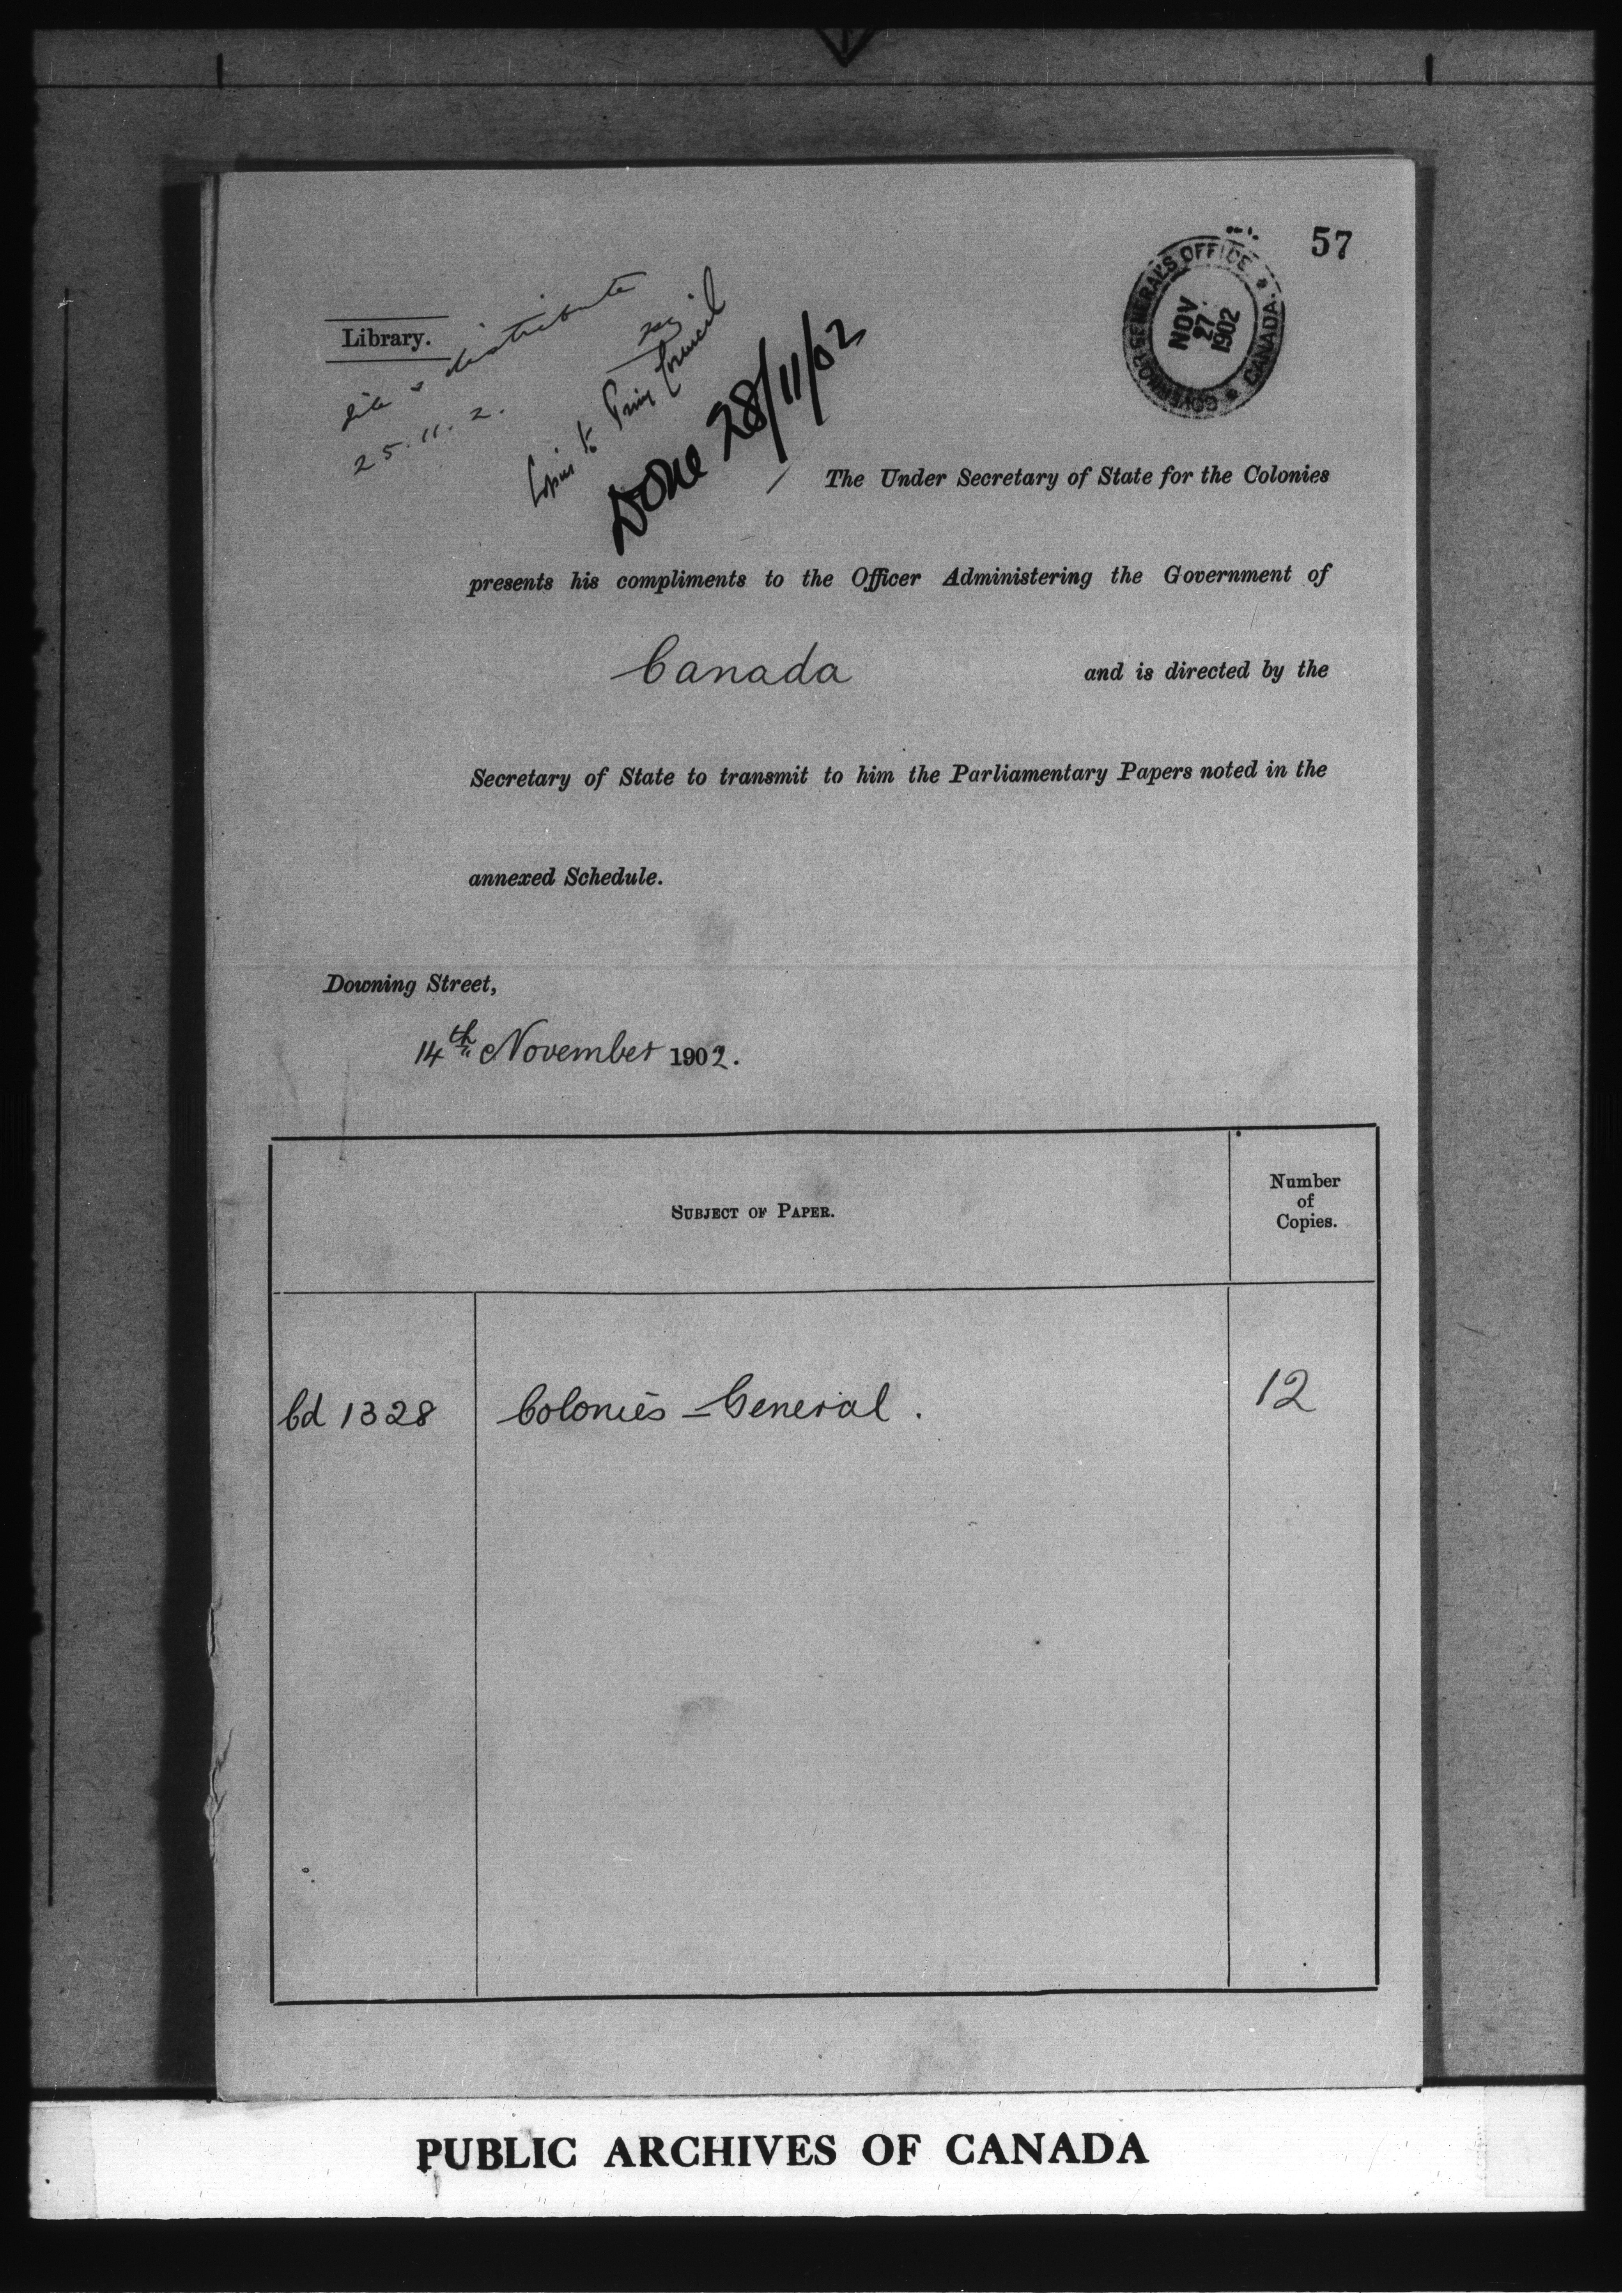 57
GOVERNOR GENERAL'S OFFICE * CANADA. *
NOV
27
1902
Library.
distribute
25.11.2.
Copies to Privy Council
Done 28/11/02
The Under Secretary of State for the Colonies
presents his compliments to the Officer Administering the Government of
Canada and is directed by the
Secretary of State to transmit to him the Parliamentary Papers noted in the
annexed Schedule.
Downing Street,
14th November 1902.
SUBJECT OF PAPER.
Number
of
Copies.
Cd 1328 Colonies - General. 12
PUBLIC ARCHIVES OF CANADA